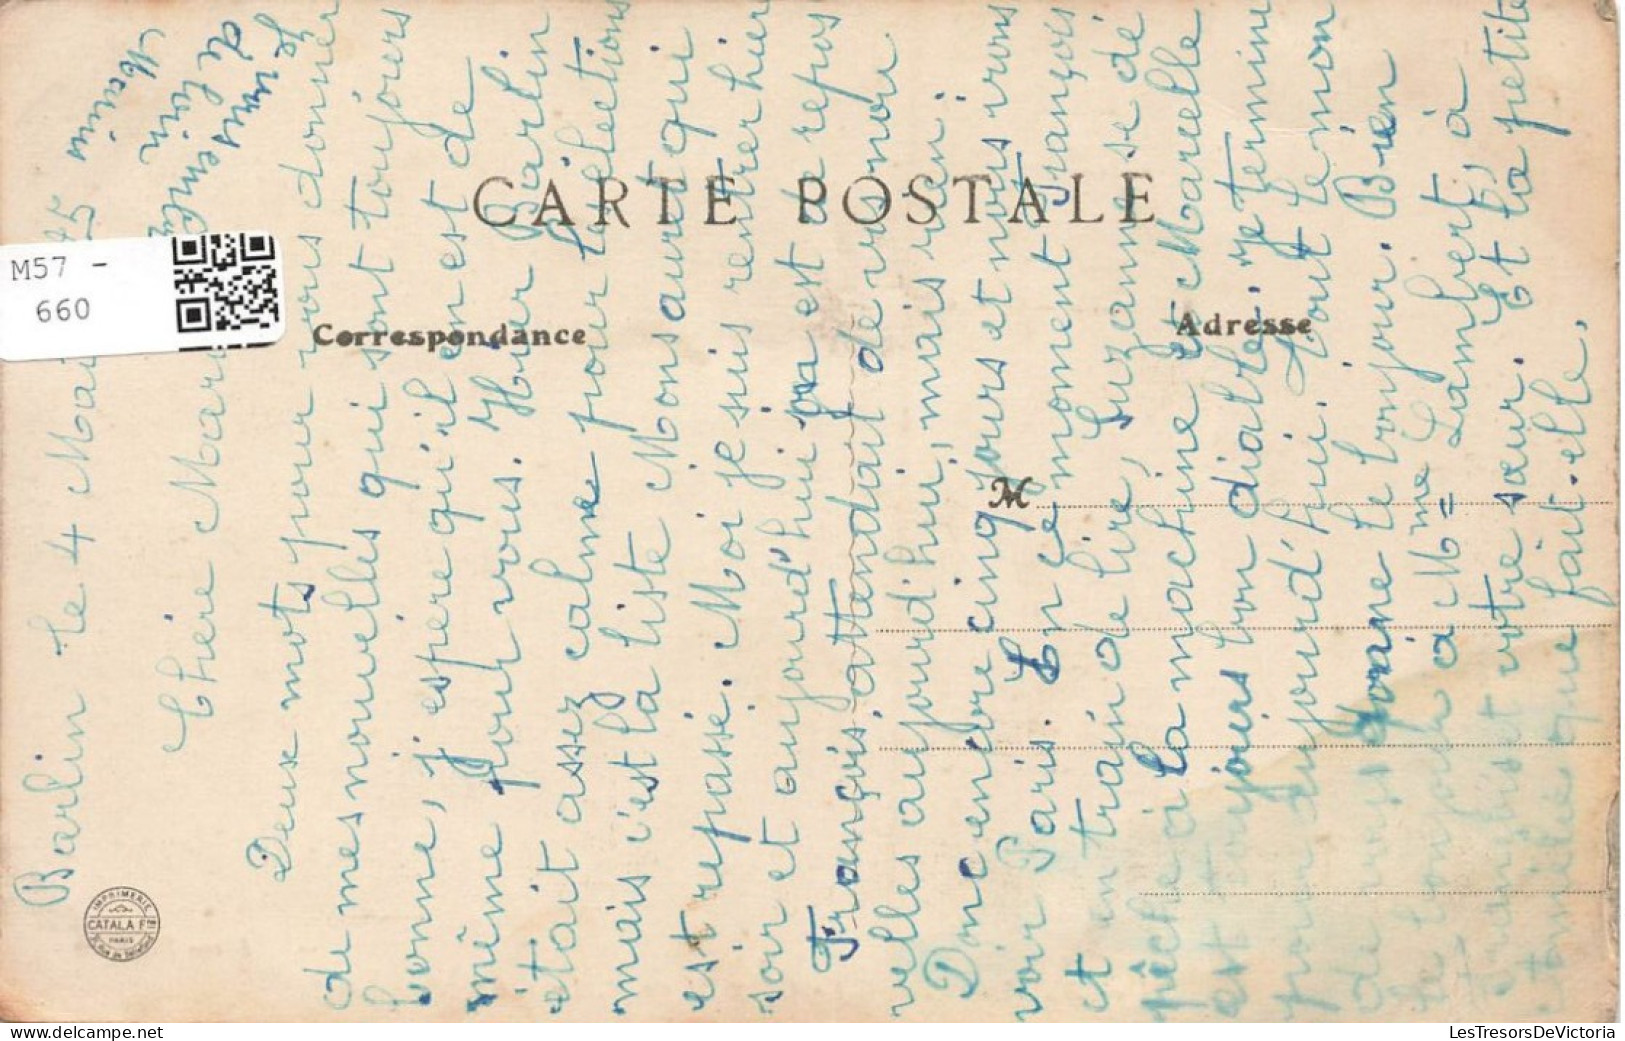 CARTE POSTALE
Correspondance
Adresse
M
M57 -
660
IMPRIMERIE
CATALA Fres
PARIS
Barlin le 4 Mai 45
Chère Mar
Deux mots pour vous donner
de mes nouvelles qui sont toujours
bonne, j'espère qu'il en est de
même pour vous. Hier Barlin
était assez calme pour l'élections
mais c'est la liste Monsauret qui
est repassé. Moi je suis rentrer hier
soir et aujourd'hui ça est de repos
François attendait de vos nou
velles aujourd'hui, mais rien.
Donc encore cinq jours et nous irons
voir Paris. En ce moment François
et en train de lire, Suzanne se dé
pêche à la machine et Marcelle
est toujours bon diable. je termine
pour aujourd'hui. Tout le mon
de vous le bonjour. Bien
le bonjour à Mme Lambert, à
Franç et votre sœur. Et la petite
que fait-elle.
Je vous
de loin
Main
LesTresorsDeVictoria